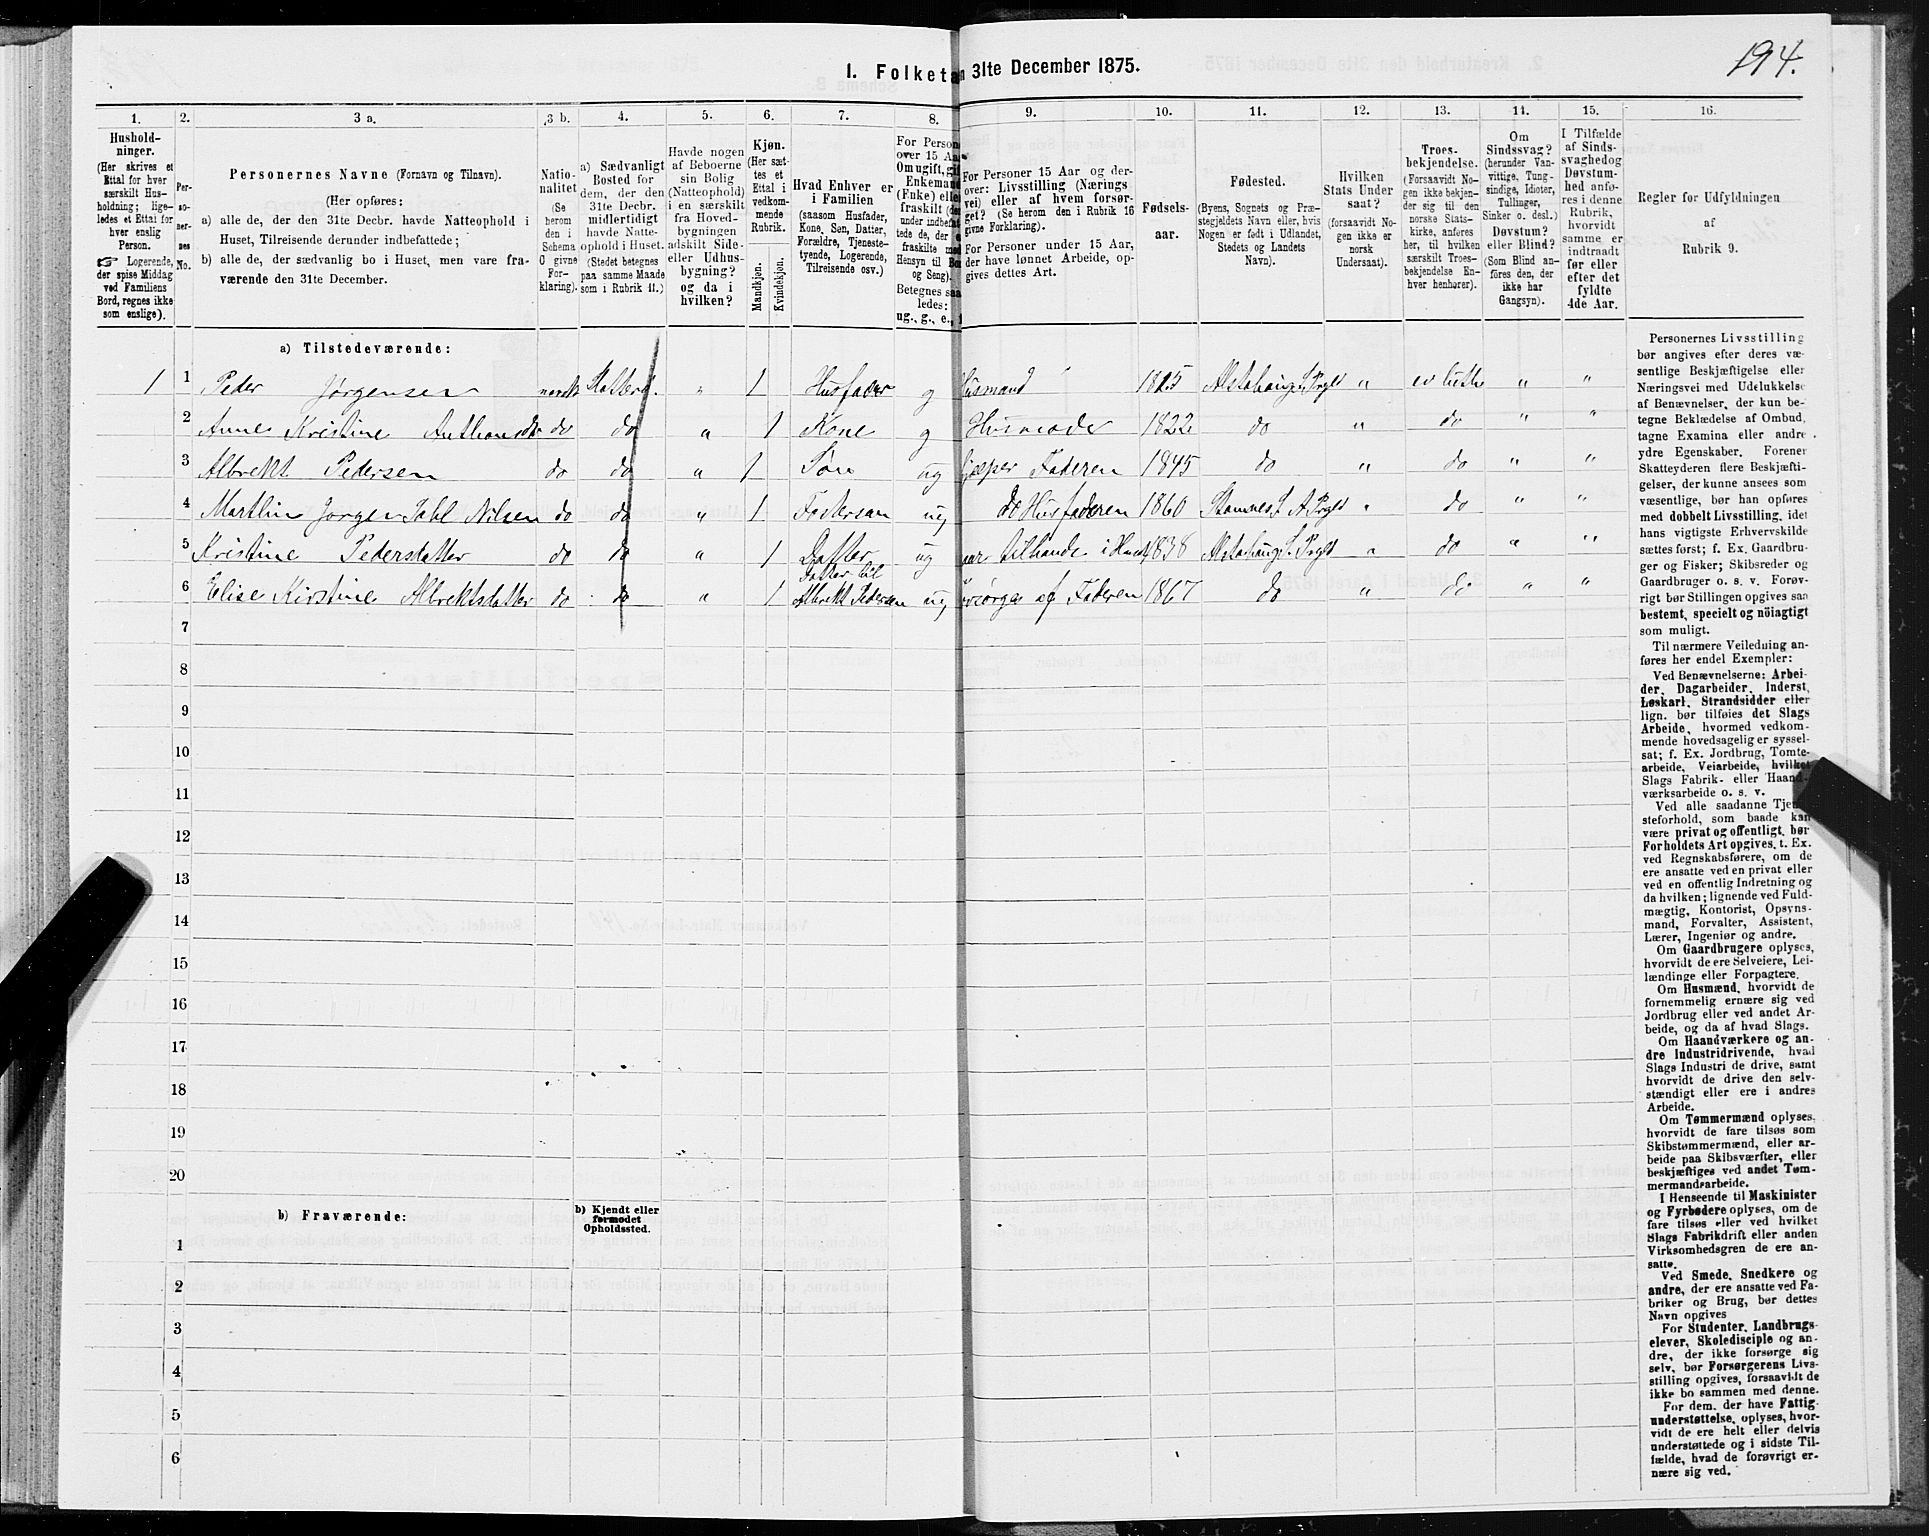 194.
I. Folketa n 31te December 1875.
1. 2. 3 a. 3 b. 4. 5. 6. 7. 8. 9. 10. 11. 12. 13. 14. 15. 16.
Hushold-
ninger.
(Her skrives et
Ettal for hver
særskilt Hus-
holdning; lige-
ledes et Ettal for
hver enslig
Person.
☞ Logerende,
der spise Middag
ved Familiens
Bord, regnes ikke
som enslige).
Per-
so-
ner-
nes
No.
Personernes Navne (Fornavn og Tilnavn).
(Her opføres:
a) alle de, der den 31te Decbr. havde Natteophold i
Huset, Tilreisende derunder indbefattede;
b) alle de, der sædvanlig bo i Huset, men vare fra-
værende den 31te December.
Natio-
nalitet
(Se
herom
den i
Schema
O givne
For-
klaring).
a) Sædvanligt
Bosted for
dem, der den
31te Decbr.
midlertidigt
havde Natte-
ophold i Huset.
(Stedet betegnes
paa samme Maade
som i Rubrik 11.)
Havde nogen
af Beboerne
sin Bolig
(Natteophold)
i en særskilt
fra Hoved-
bygningen
adskilt Side-
eller Udhus-
bygning?
og da i
hvilken?
Kjøn.
(Her sæt-
tes et
Ettal i
vedkom-
mende
Rubrik.
Mandkjøn.
Kvindekjøn.
Hvad Enhver er
i Familien
(saasom Husfader,
Kone, Søn, Datter,
Forældre, Tjeneste-
tyende, Logerende,
Tilreisende osv.)
For Person
over 15 Aa
Om ugift, gif
Enkemand
(Enke) elle
fraskilt (de
under indbefat
tede de, der e
fraskilte med
Hensyn til Bo
og Seng).
Betegnes saa
ledes:
ug., g., e.,
For Personer 15 Aar og der-
over: Livsstilling (Nærings
vei) eller af hvem forsør-
get? (Se herom den i Rubrik 16
givne Forklaring).
For Personer under 15 Aar,
der have lønnet Arbeide, op-
gives dettes Art.
Fødsels-
aar.
Fødested.
(Byens, Sognets og Præ-
stegjeldets Navn eller, hvis
Nogen er født i Udlandet,
Stedets og Landets
Navn).
Hvilken
Stats Under
saat?
(forsaavidt No-
gen ikke er
norsk
Undersaat).
Troes-
bekjendelse.
(Forsaavidt No-
gen ikke bekjen-
der sig til den
norske Stats-
kirke, anføres
her, til hvilken
særskilt Troes-
bekjendelse En-
hver henhører).
Om
Sindssvag?
(herunder Van-
vittige, Tung-
sindige, Idioter,
Tullinger,
Sinker o. desl.)
Døvstum?
eller Blind?
(Som Blind an-
føres den, der
ikke har
Gangsyn).
I Tilfælde
af Sinds-
svaghed og
Døvstum-
hed anfø-
res i denne
Rubrik,
hvorvidt
samme er
indtraadt
før eller
efter det
fyldte
4de Aar.
Regler for Udfyldningen
af
Rubrik 9.
a) Tilstedeværende:
1 1 Peder Jørgensen norsk " 1 Husfader g Husmand 1815 Alstahaug S. Prgld " ev luth " "
2 Anne Kristine do do " 1 Kone g Husmoder 1822 do " do " "
3 Albrekt Pedersen do do " 1 Søn ug hjælper Faderen 1845 do " do " "
4 Jørgen Nilsen do do " 1 Fostersøn ug do Husfaderen 1860 Stamnes S. A. Prgld " do " "
5 Kristine Pedersdatter do do " 1 Datter ug tilhaande i Huset 1838 Alstahaug S. Prgld " do " "
6 Elise Kirstine Albrektsdatter do do " 1 Datter til
Albrekt Pedersen ug forsørges af Faderen 1867 do " do " "
7
8
9
10
11
12
13
14
15
16
17
18
19
20
b) Fraværende:
b) Kjendt eller
formodet
Opholdssted.
1
2
3
4
5
6
Personernes Livsstilling
bør angives efter deres væ-
sentlige Beskjæftigelse eller
Næringsvei med Udelukkelse
af Benævnelser, der kun be-
tegne Beklædelse af Ombud,
tagne Examina eller andre
ydre Egenskaber. Forener
Skatteyderen flere Beskjæfti-
gelser, der kunne ansees som
væsentlige, bør han opføres
med dobbelt Livsstilling, idet
hans vigtigste Erhvervskilde
sættes først; f. Ex. Gaardbru-
ger og Fisker; Skibsreder og
Gaardbruger o. s. v. Forøv-
rigt bør Stillingen opgives saa
bestemt, specielt og nöiagtigt
som muligt.
Til nærmere Veiledning an-
føres her endel Exempler:
Ved Benævnelserne: Arbei-
der, Dagarbeider, Inderst,
Løskarl, Strandsidder eller
lign. bør tilføies det Slags
Arbeide, hvormed vedkom-
mende hovedsagelig er syssel-
sat; f. Ex. Jordbrug, Tomte-
arbeide, Veiarbeide, hvilket
Slags Fabrik- eller Haand-
værksarbeide o. s. v.
Ved alle saadanne Tjene-
steforhold, som baade kan
være privat og offentligt, bør
Forholdets Art opgives, t. Ex.
ved Regnskabsførere, om de
ere ansatte ved en privat eller
ved en offentlig Indretning og
da hvilken; lignende ved Fuld-
mægtig, Kontorist, Opsyns-
mand, Forvalter, Assistent,
Lærer, Ingeniør og andre.
Om Gaardbrugere oplyses,
hvorvidt de ere Selveiere, Lei-
lændinge eller Forpagtere.
Om Husmænd, hvorvidt de
fornemmelig ernære sig ved
Jordbrug eller ved andet Ar-
beide, og da af hvad Slags.
Om Haandværkere og an-
dre Industridrivende, hvad
Slags Industri de drive, samt
hvorvidt de drive den selv-
stændigt eller ere i andres
Arbeide.
Om Tømmermænd oplyses,
hvorvidt de fare tilsøs som
Skibstømmermænd, eller ar-
beide paa Skibsværfter, eller
beskjæftiges ved andet Tøm-
mermandsarbeide.
I Henseende til Maskinister
og Fyrbødere oplyses, om de
fare tilsøs eller ved hvilket
Slags Fabrikdrift eller anden
Virksomhedsgren de ere an-
satte.
Ved Smede, Snedkere og
andre, der ere ansatte ved Fa-
briker og Brug, bør dettes
Navn opgives
For Studenter, Landbrugs-
elever, Skoledisciple og an-
dre, der ikke forsørge sig
selv, bør Forsørgerens Livs-
stilling opgives, forsaavidt de
ikke bo sammen med denne.
For dem, der have Fattig-
understøttelse, oplyses, hvor-
vidt de ere helt eller delvis
understøttede og i sidste Til-
fælde, hvad de forøvrigt er-
nære sig ved.